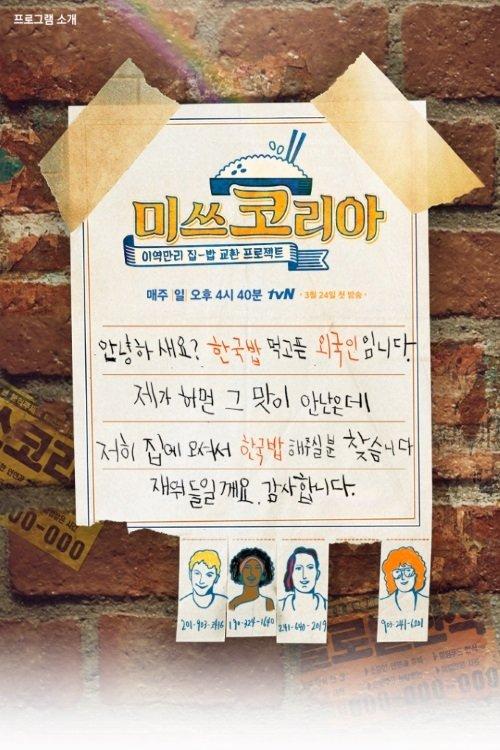 프로그램 소개
미쓰코리아
이역만리 집-밥 교환 프로젝트
매주 일 오후 4시 40분 tvN · 3월 24일 첫 방송 ·
안녕하새요? 한국밥 먹고픈 외국인입니다.
제가 하면 그 맛이 안난은데
저희 집에 오셔서 한국밥 해주실분 찾습니다
재워 들일게요. 감사합니다.
201-903-2416
180-324-1640
241-640-2019
903-241-6201
쓰코리
00-000
000-000-0000